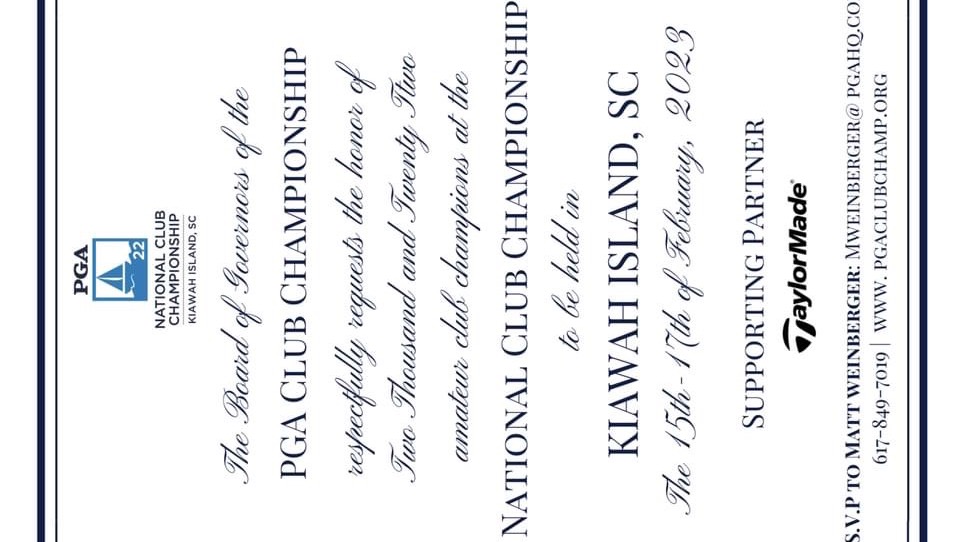 PGA
22
NATIONAL CLUB
CHAMPIONSHIP
KIAWAH ISLAND, SC
The Board of Governors of the
PGA CLUB CHAMPIONSHIP
respectfully requests the honor of
Two Thousand and Twenty Ttwo
amateur club champions at the
NATIONAL CLUB CHAMPIONSHIP
to be held in
KIAWAH ISLAND, SC
The 15th-17th of February, 2023
SUPPORTING PARTNER
TaylorMade®
S.V.P TO MATT WEINBERGER: MWEINBERGER@ PGAHQ.CO
617-849-7019 | WWW. PGACLUBCHAMP.ORG